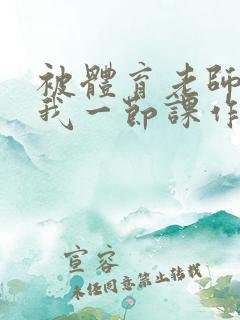 被體育老師
我一節課作
宣容
未任同意禁止转载